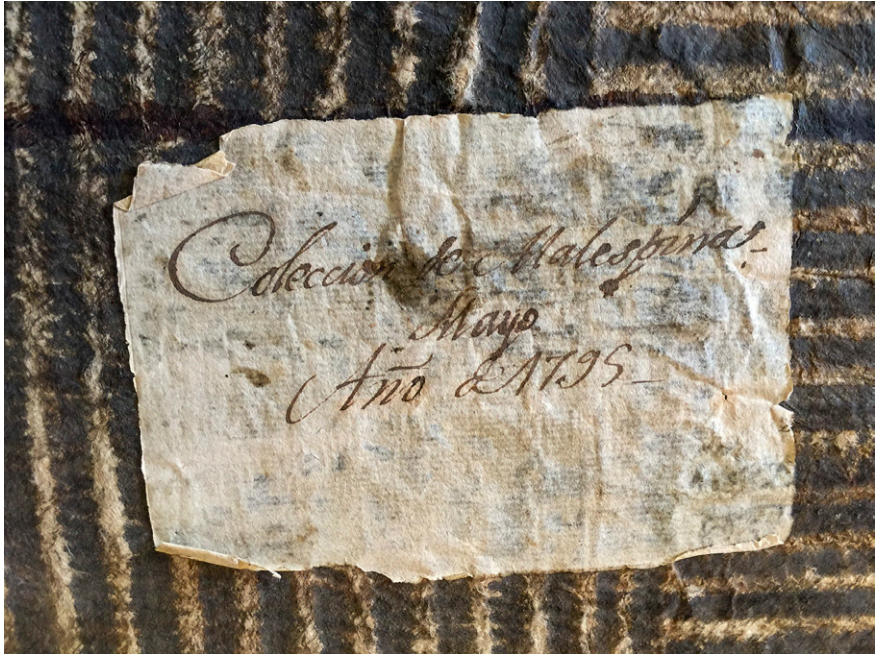 Coleccion de Malespina
Mayo
Año d 1795